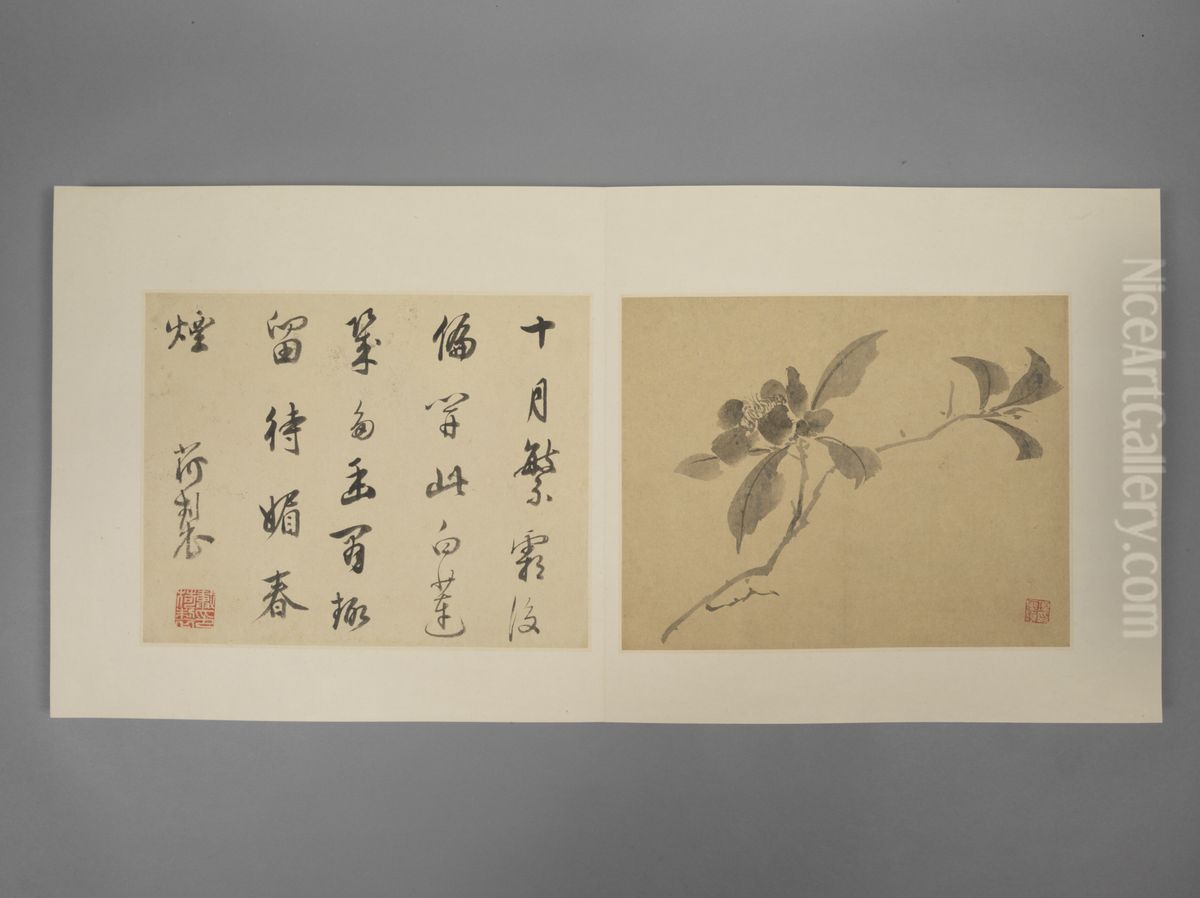 十月繁霜後
偏開此白蓮
幾多幽閒趣
留待媚春
煙
NiceArtGallery.com